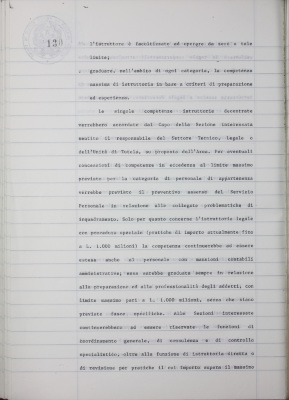 130
l'istruttore è facoltizzato ad operare da solo a tale
limite;
. graduare, nell'ambito di ogni categoria, la competenza
massima di istruttoria in base a criteri di preparazione
ed esperienza.
Le singole competenze istruttorie decentrate
verrebbero accentrate dal Capo della Sezione interessata
sentito il responsabile del Settore Tecnico, legale o
dell'Unità di Tutela, su proposta dell'Area. Per eventuali
concessioni di competenze in eccedenza al limite massimo
previsto per la categoria di personale di appartenenza
verrebbe previsto il preventivo assenso del Servizio
Personale in relazione alle collegate problematiche di
inquadramento. Solo per quanto concerne l'istruttoria legale
con procedura speciale (pratiche di importo attualmente fino
a L. 1.000 milioni) la competenza continuerebbe ad essere
estesa anche al personale con mansioni contabili
amministrative; essa sarebbe graduata sempre in relazione
alla preparazione ed alla professionalità degli addetti, con
limite massimo pari a L. 1.000 milioni, senza che siano
previste fasce specifiche. Alle Sezioni interessate
continuerebbero ad essere riservate le funzioni di
coordinamento generale, di consulenza e di controllo
specialistico, oltre alla funzione di istruttoria diretta o
di revisione per pratiche il cui importo supera il massimo